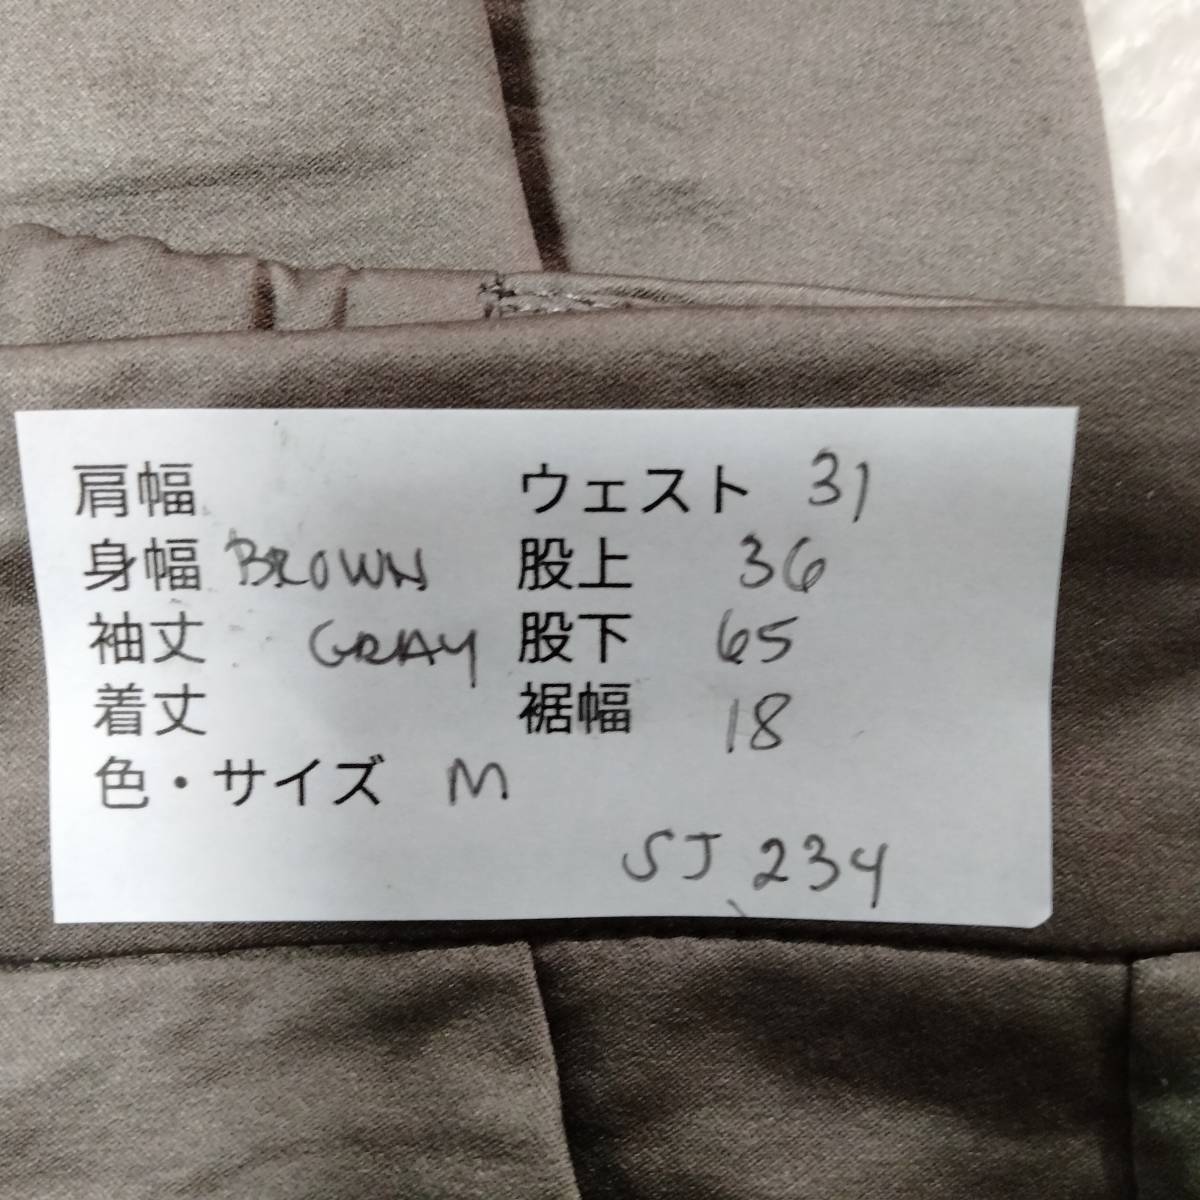 肩幅 ウェスト 31
身幅 BROWN 股上 36
袖丈 GRAY 股下 65
着丈 裾幅 18
色・サイズ M
SJ 234